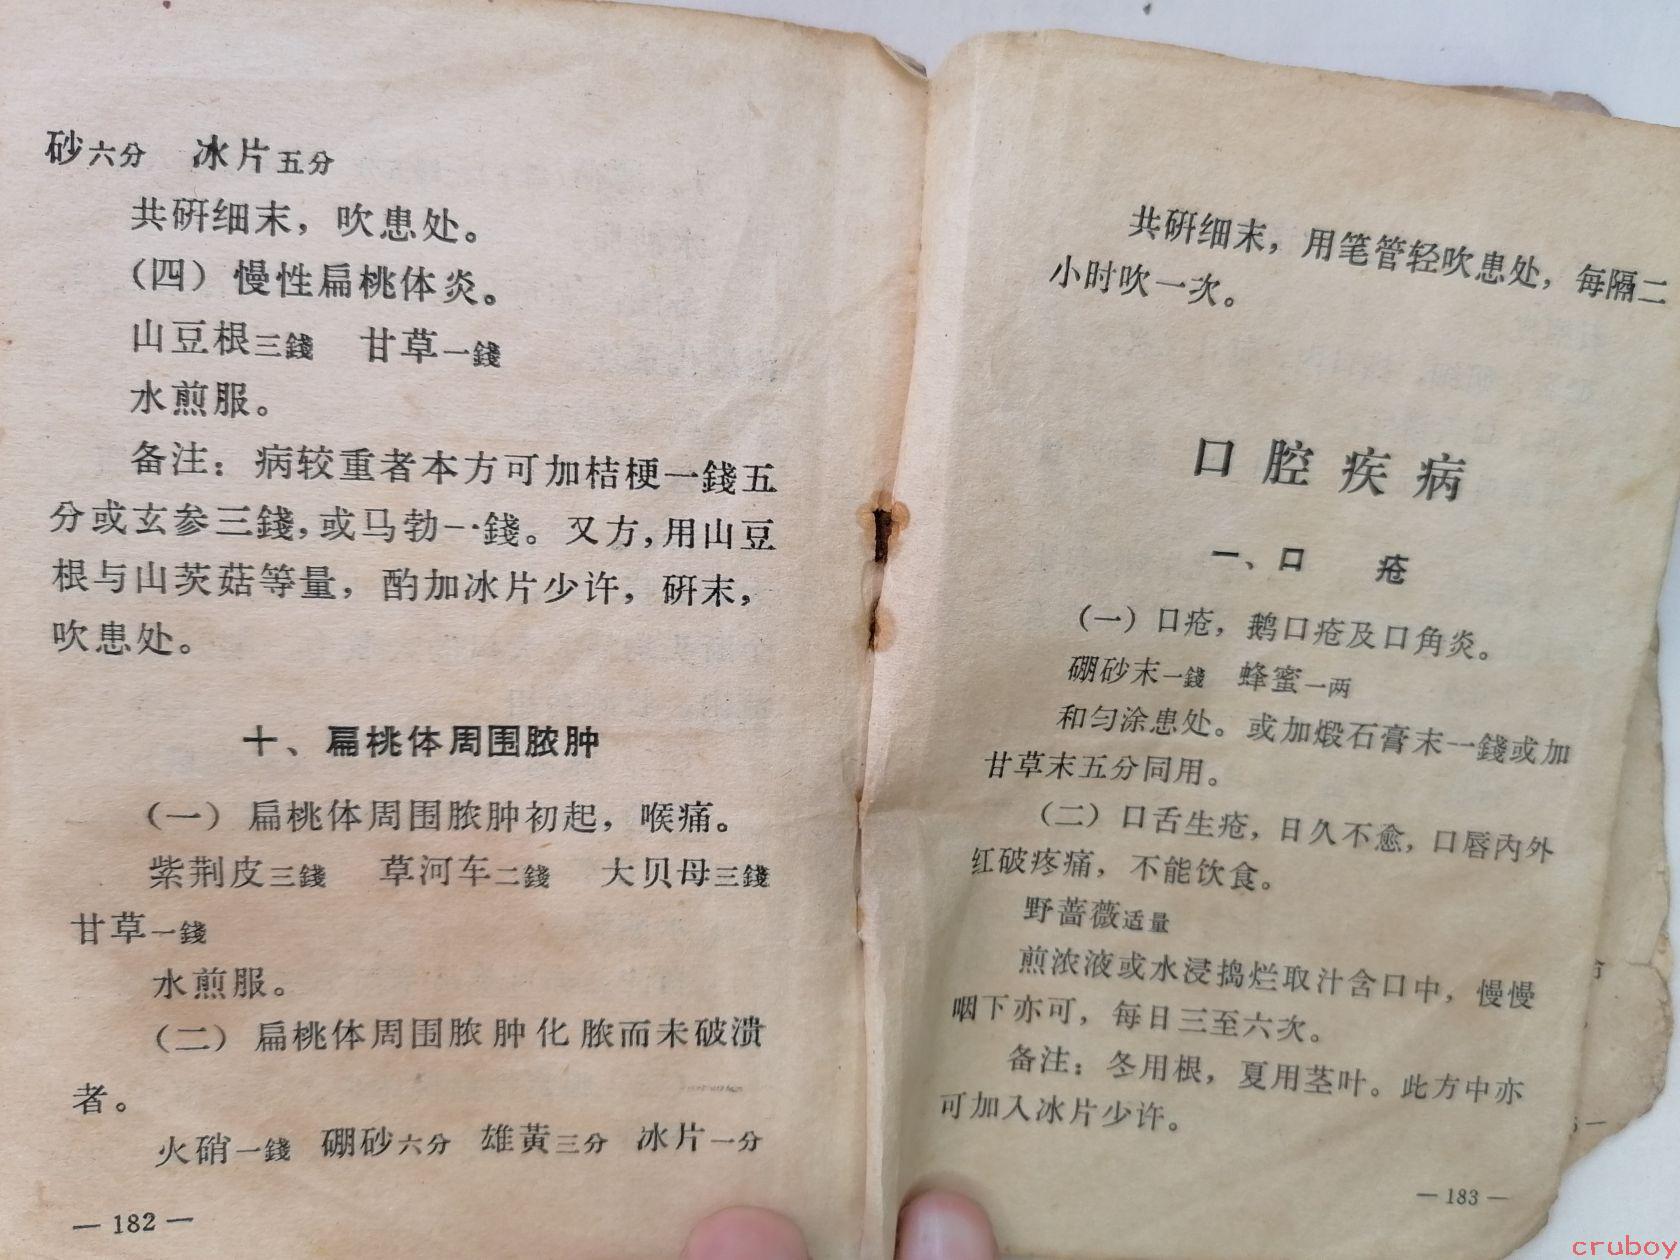 砂六分　冰片五分
共研细末，吹患处。
（四）慢性扁桃体炎。
山豆根三錢　甘草一錢
水煎服。
备注：病较重者本方可加桔梗一錢五
分或玄参三錢，或马勃一錢。又方，用山豆
根与山茨菇等量，酌加冰片少许，研末，
吹患处。
十、扁桃体周围脓肿
（一）扁桃体周围脓肿初起，喉痛。
紫荆皮三錢　草河车二錢　大贝母三錢
甘草一錢
水煎服。
（二）扁桃体周围脓肿化脓而未破溃
者。
火硝一錢　硼砂六分　雄黄三分　冰片一分
— 182 —
共研细末，用笔管轻吹患处，每隔二
小时吹一次。
口腔疾病
一、口　疮
（一）口疮，鹅口疮及口角炎。
硼砂末一錢　蜂蜜一两
和匀涂患处。或加煅石膏末一錢或加
甘草末五分同用。
（二）口舌生疮，日久不愈，口唇内外
红破疼痛，不能饮食。
野蔷薇适量
煎浓液或水浸捣烂取汁含口中，慢慢
咽下亦可，每日三至六次。
备注：冬用根，夏用茎叶。此方中亦
可加入冰片少许。
— 183 —
cruboy